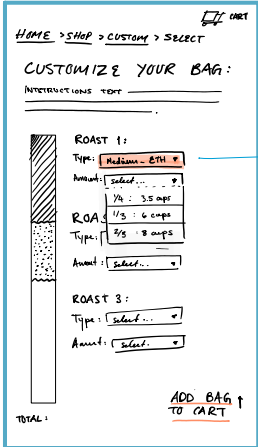 CART
HOME > SHOP > CUSTOM > SELECT
CUSTOMIZE YOUR BAG:
INSTRUCTIONS TEXT
ROAST 1:
Type: Medium - ETH
Amount: Select...
1/4 : 3.5 cups
1/3 : 6 cups
2/3 : 8 cups
ROAS
Type:
Amount: Select...
ROAST 3:
Type: Select...
Amount: Select...
ADD BAG
TO CART
TOTAL: